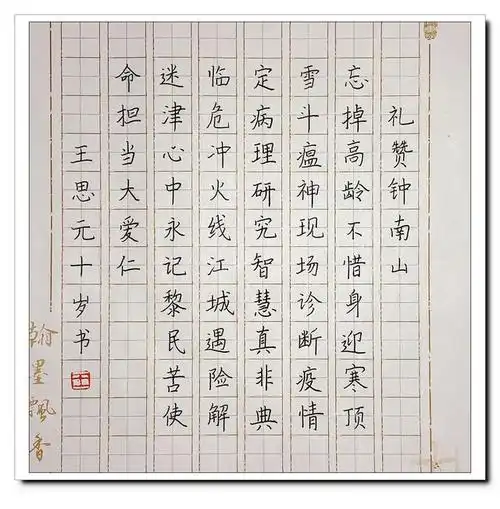 礼赞钟南山
忘掉高龄不惜身迎寒顶
雪斗瘟神现场诊断疫情
定病理研究智慧真非典
临危冲火线江城遇险解
迷津心中永记黎民苦使
命担当大爱仁
王思元十岁书
王
翰墨飘香